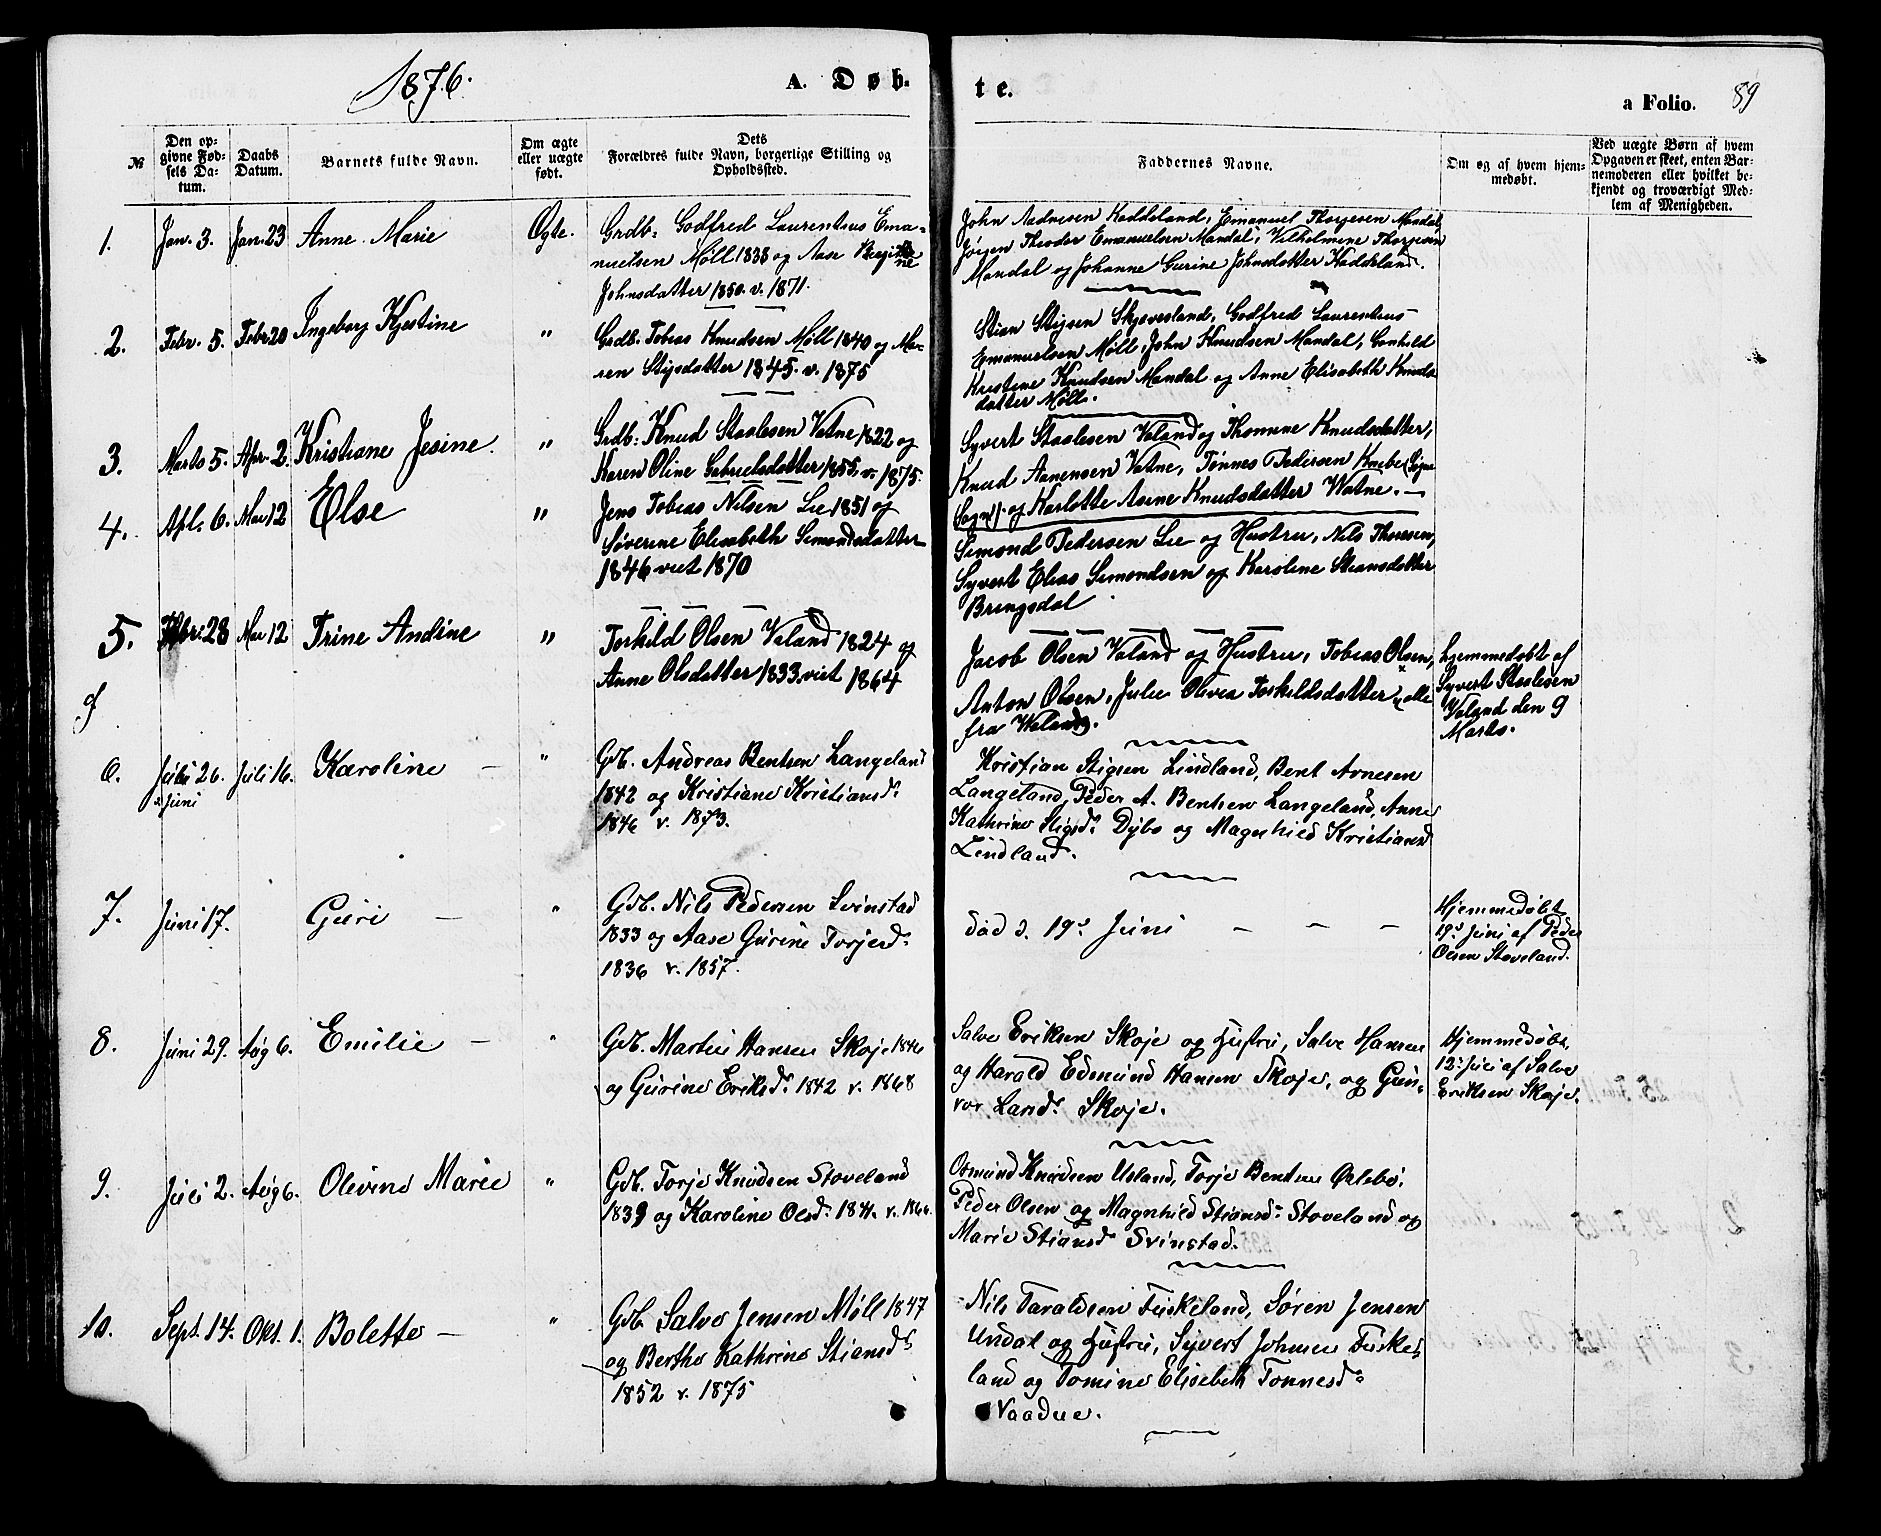 1876.
A. Døb-
te.
a Folio. 89
№
Den op-
givne Fød-
sels Da-
tum.
Daabs
Datum.
Barnets fulde Navn.
Om ægte
eller uægte
født.
Dets
Forældres fulde Navn, borgerlige Stilling og
Opholdssted.
Faddernes Navne.
Om og af hvem hjem-
medøbt.
Ved uægte Børn af hvem
Opgaven er skeet, enten Bar-
nemoderen eller hvilket be-
kjendt og troværdigt Med-
lem af Menigheden.
1. Jan. 3. Jan. 23 Anne Marie Ægte.
Grdb. Godfred Laurentius Ema-
nuelsen Møll 1838 og Aase Birgitte
Johnsdatter 1850. v. 1871.
John Aadnesen Haddeland, Emanuel Thorjesen Mandal,
Jörgen Theodor Emanuelsen Mandal, Vilhelmine Thorjesen
Mandal og Johanne Gurine Johnsdatter Haddeland.
2. Febr. 5. Febr. 20 Ingeborg Kjestine "
Grdb. Tobias Knudsen Møll 1840 og Ma-
ren Stigsdatter 1845. v. 1875
Stian Stigsen Skjævesland, Godfred Laurentius
Emanuelsen Møll, John Knudsen Mandal, Gunhild
Kristine Knudsen Mandal og Anne Elisabeth Knuds-
datter Møll.
3. Marts 5. Apr. 2. Kristiane Jesine. "
Grdb. Knud Staalesen Vatne 1822 og
Karen Oline Gabrielsdatter 1855. v. 1875.
Syvert Staalesen Valand og Thomine Knudsdatter,
Knud Aanensen Vatne, Tønnes Pedersen Knibe (Øgne
Sogn) og Karlotte Asine Knudsdatter Watne.
4. Apl. 6. Mai 12 Else "
Jens Tobias Nilsen Lie 1851 og
Søverine Elisabeth Simondsdatter
1846 viet 1870
Simond Pedersen Lie og Hustru, Nils Thorsen,
Syvert Elias Simondsen og Karoline Stiansdatter
Bringsdal
5. Febr. 28 Mai 12 Trine Andine "
Torkild Olsen Valand 1824 og
Anne Olsdatter 1833, viet 1864
Jacob Olsen Valand og Hustru, Tobias Olsen,
Anton Olsen, Julie Olivia Torkildsdatter, alle
fra Waland.
hjemmedøbt af
Syvert Staalesen
Valand den 9
Marts.
6. Juli 26. Juli 16. Karoline — "
Juni
Gdb. Andreas Bentsen Langeland
1842 og Kristiane Kristiansd.
1846 v. 1873.
Kristian Stigsen Lindland, Bent Arnesen
Langeland, Peder A. Bentsen Langeland, Anne
Kathrine Stigsd. Dybo og Magnhild Kristiansd
Lindland.
7. Juni 17. Guri — "
Gdb. Nils Pedersen Svinstad
1833 og Aase Gurine Torjesd.
1836 v. 1857.
død d. 19d Juni — — —
Hjemmedøbt
19d Juni af Peder
Olsen Stoveland.
8. Juni 29. Aug 6. Emilie — "
Gdb. Martin Hansen Skoje 1846
og Gurine Eriksd. 1842 v. 1868
Salve Eriksen Skoje og Hustru, Salve Hansen
og Harald Edmund Hansen Skoje, og Gun-
vor Land. Skoje.
Hjemmedøbt
12. Juli af Salve
Eriksen Skoje.
9. Juli 2. Aug 6. Olivine Marie "
Gdb. Torje Knudsen Stoveland
1839 og Karoline Olsd. 1841. v. 186.
Osmund Knudsen Usland, Torje Bentsen Øslebø,
Peder Olsen og Magnhild Stiansd. Stoveland og
Marie Stiansd. Svinstad.
10. Sept. 14. Okt. 1. Bolette — "
Gdb. Salve Jensen Møll 1847
og Berthe Kathrine Stiansd.
1852 v. 1875
Nils Taraldsen Fuskeland, Søren Jensen
Undal og Hustru, Syvert Johnsen Fuske-
land og Tomine Elisebeth Tønnesd.
Vaadne.